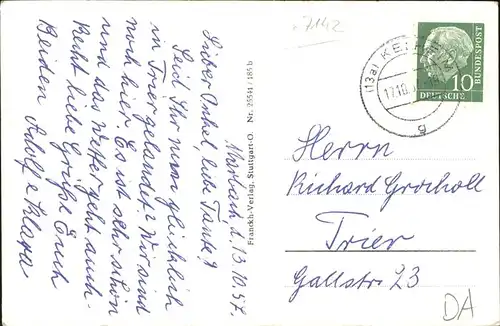 d. 13.10.57.
Lieber Onkel, liebe Tante!
Seid Ihr nun glücklich
in Trier gelandet? Wir sind
noch hier. Es ist sehr schön
und das Wetter geht auch.
Recht liebe Grüße Euch
Beiden Adolf u Klara
Franckh-Verlag, Stuttgart-O. Nr. 25541 / 185 b
7142
(13a)
17.10.
g
DEUTSCHE
BUNDESPOST
10
Herrn
Richard Grocholl
Trier
Gallstr 23
DA